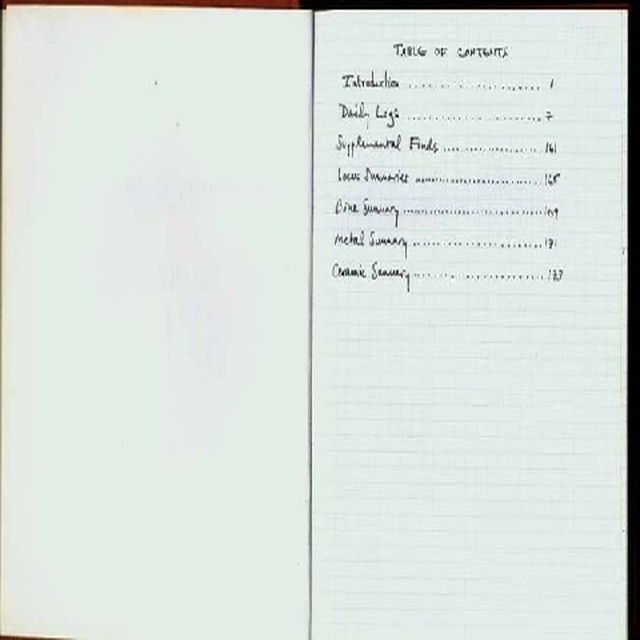 TABLE OF CONTENTS
Introduction .................. 1
Daily Logs .................. 7
Supplemental Finds .................. 161
Locus Summaries .................. 165
Bone Summary .................. 169
Metal Summary .................. 171
Ceramic Summary ..................